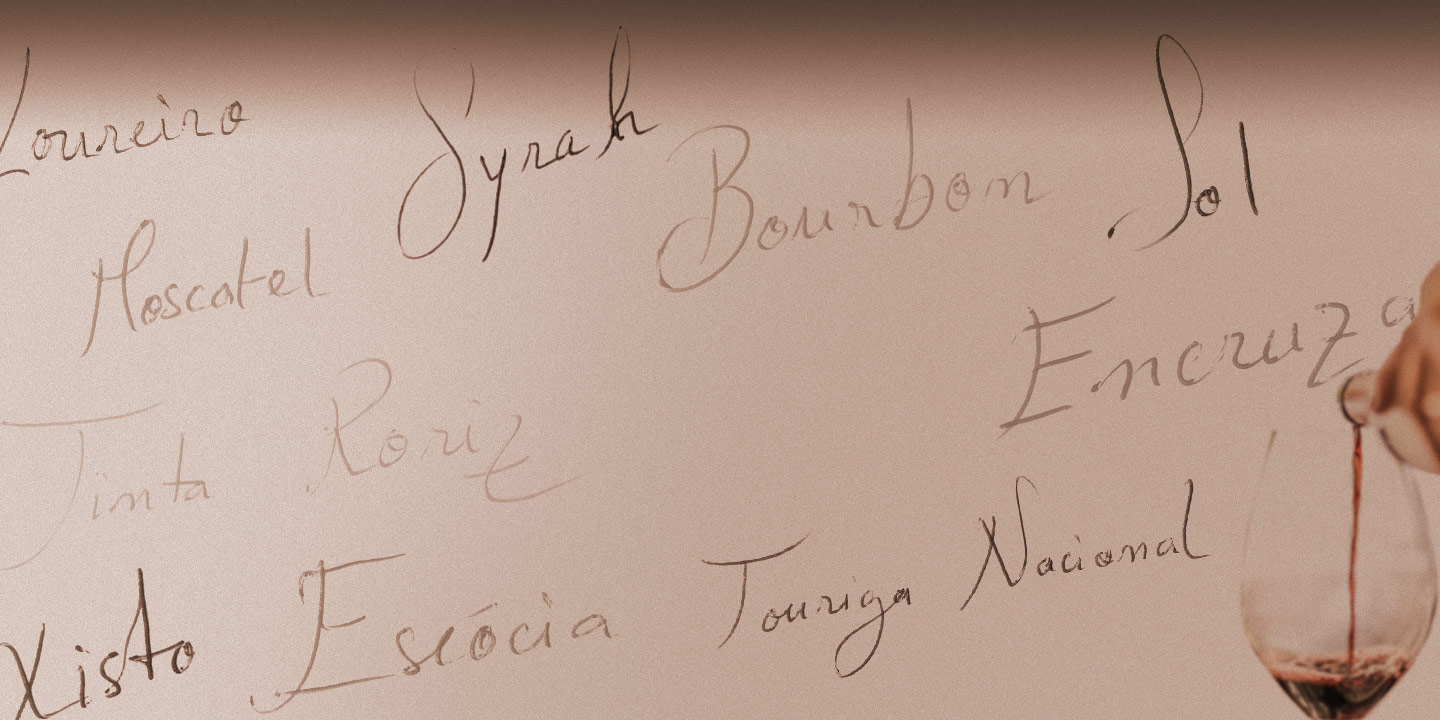 Loureiro
Syrah
Bourbon
Sol
Moscatel
Encruza
Tinta Roriz
Xisto
Escócia
Touriga Nacional